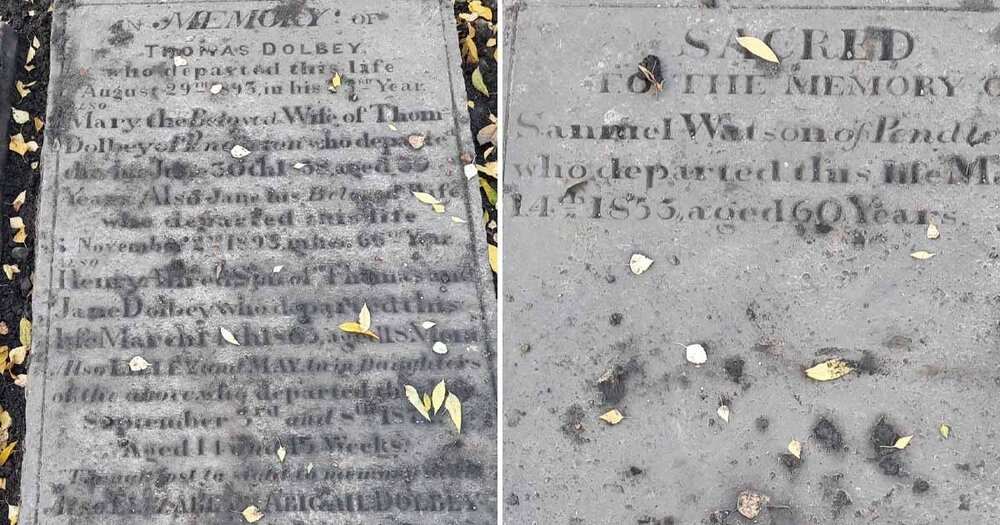 IN MEMORY OF
THOMAS DOLBEY,
who departed this life
August 29th 1893, in his Year.
ALSO
Mary the Beloved Wife of Thom
Dolbey of who departed
30th 18 8, aged
Years. Also Jane his Beloved Wife
who departed this life
November 2nd 1893, in her 66th Year
ALSO
Henry Son of Thomas and
Jane Dolbey who departed this
life March 14th 1865, aged 18 Mont
Also EMILY and MAY twin Daughters
of the above, who departed
September 3rd and 8th 18
Aged 14 and 15 Weeks.
Tho' lost to sight to memory
Also ELIZABETH ABIGAIL DOLBEY
SACRED
TO THE MEMORY O
Samuel Watson of Pendle
who departed this life Ma
14th 1855, aged 60 Years.